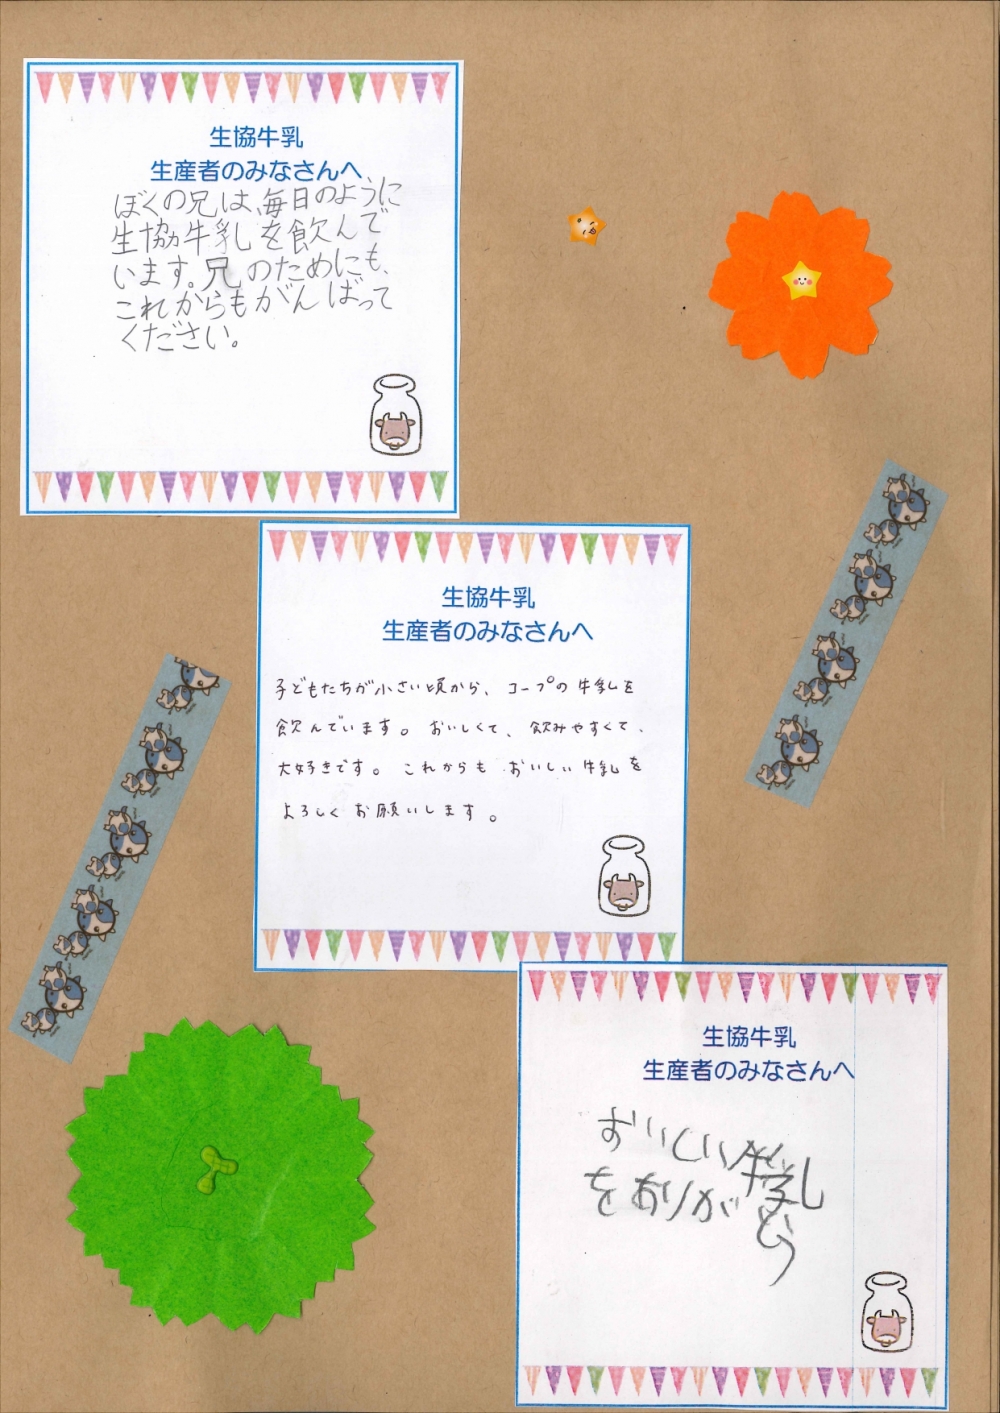 生協牛乳
生産者のみなさんへ
ぼくの兄は、毎日のように
生協牛乳を飲んで
います。兄のためにも、
これからもがんばって
ください。
生協牛乳
生産者のみなさんへ
子どもたちが小さい頃から、コープの牛乳を
飲んでいます。おいしくて、飲みやすくて、
大好きです。これからもおいしい牛乳を
よろしくお願いします。
生協牛乳
生産者のみなさんへ
おいしい牛乳
をありがとう